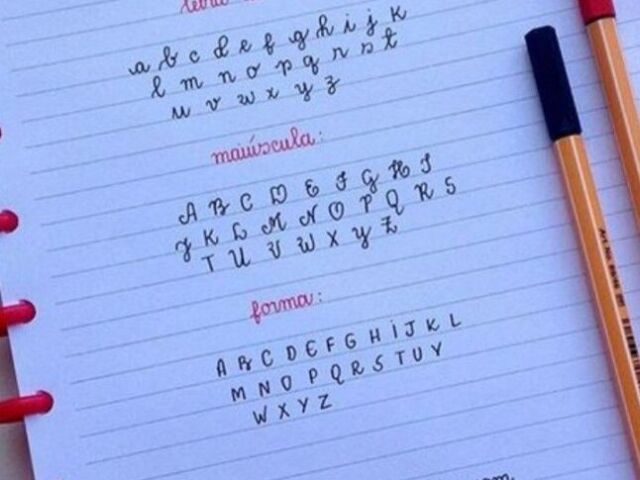 a b c d e f g h i j k
l m n o p q r s t
u v w x y z
maiúscula:
A B C D E F G H I
J K L M N O P Q R S
T U V W X Y Z
forma:
A B C D E F G H I J K L
M N O P Q R S T U V
W X Y Z